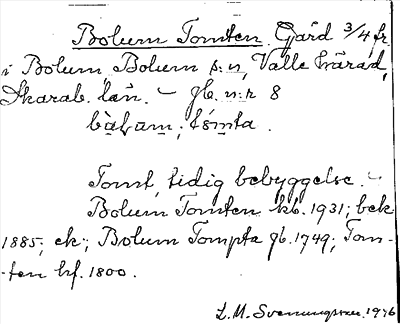 Bolum Tomten. Gård 3/4, fr.
i Bolum Bolum s:n, Valle härad,
Skarab. län. – gb. n:r 8
bòlum; tómta.
Tomt, tidig bebyggelse. –
Bolum Tomten kb. 1931; bek
1885; ek; Bolum Tompta gb. 1749; Tom-
-ten hf. 1800.
L. M. Svenungsson. 1926